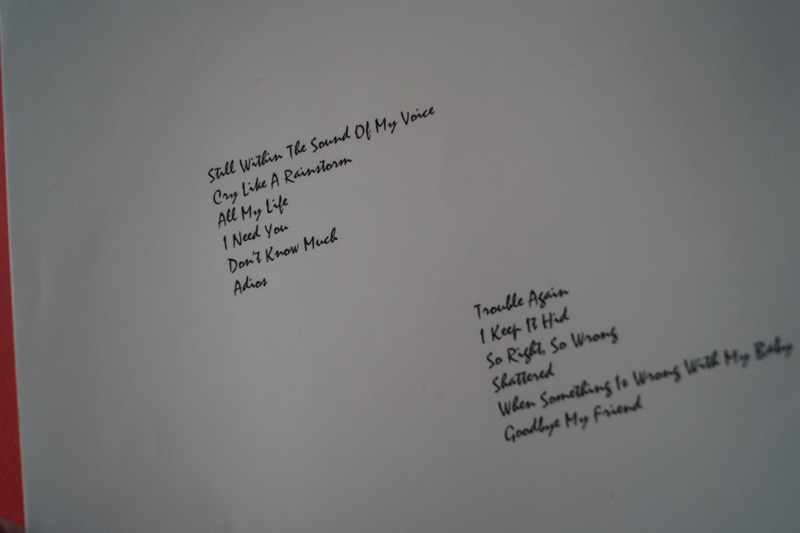 Still Within The Sound Of My Voice
Cry Like A Rainstorm
All My Life
I Need You
Don't Know Much
Adios
Trouble Again
I Keep It Hid
So Right, So Wrong
Shattered
When Something Is Wrong With My Baby
Goodbye My Friend